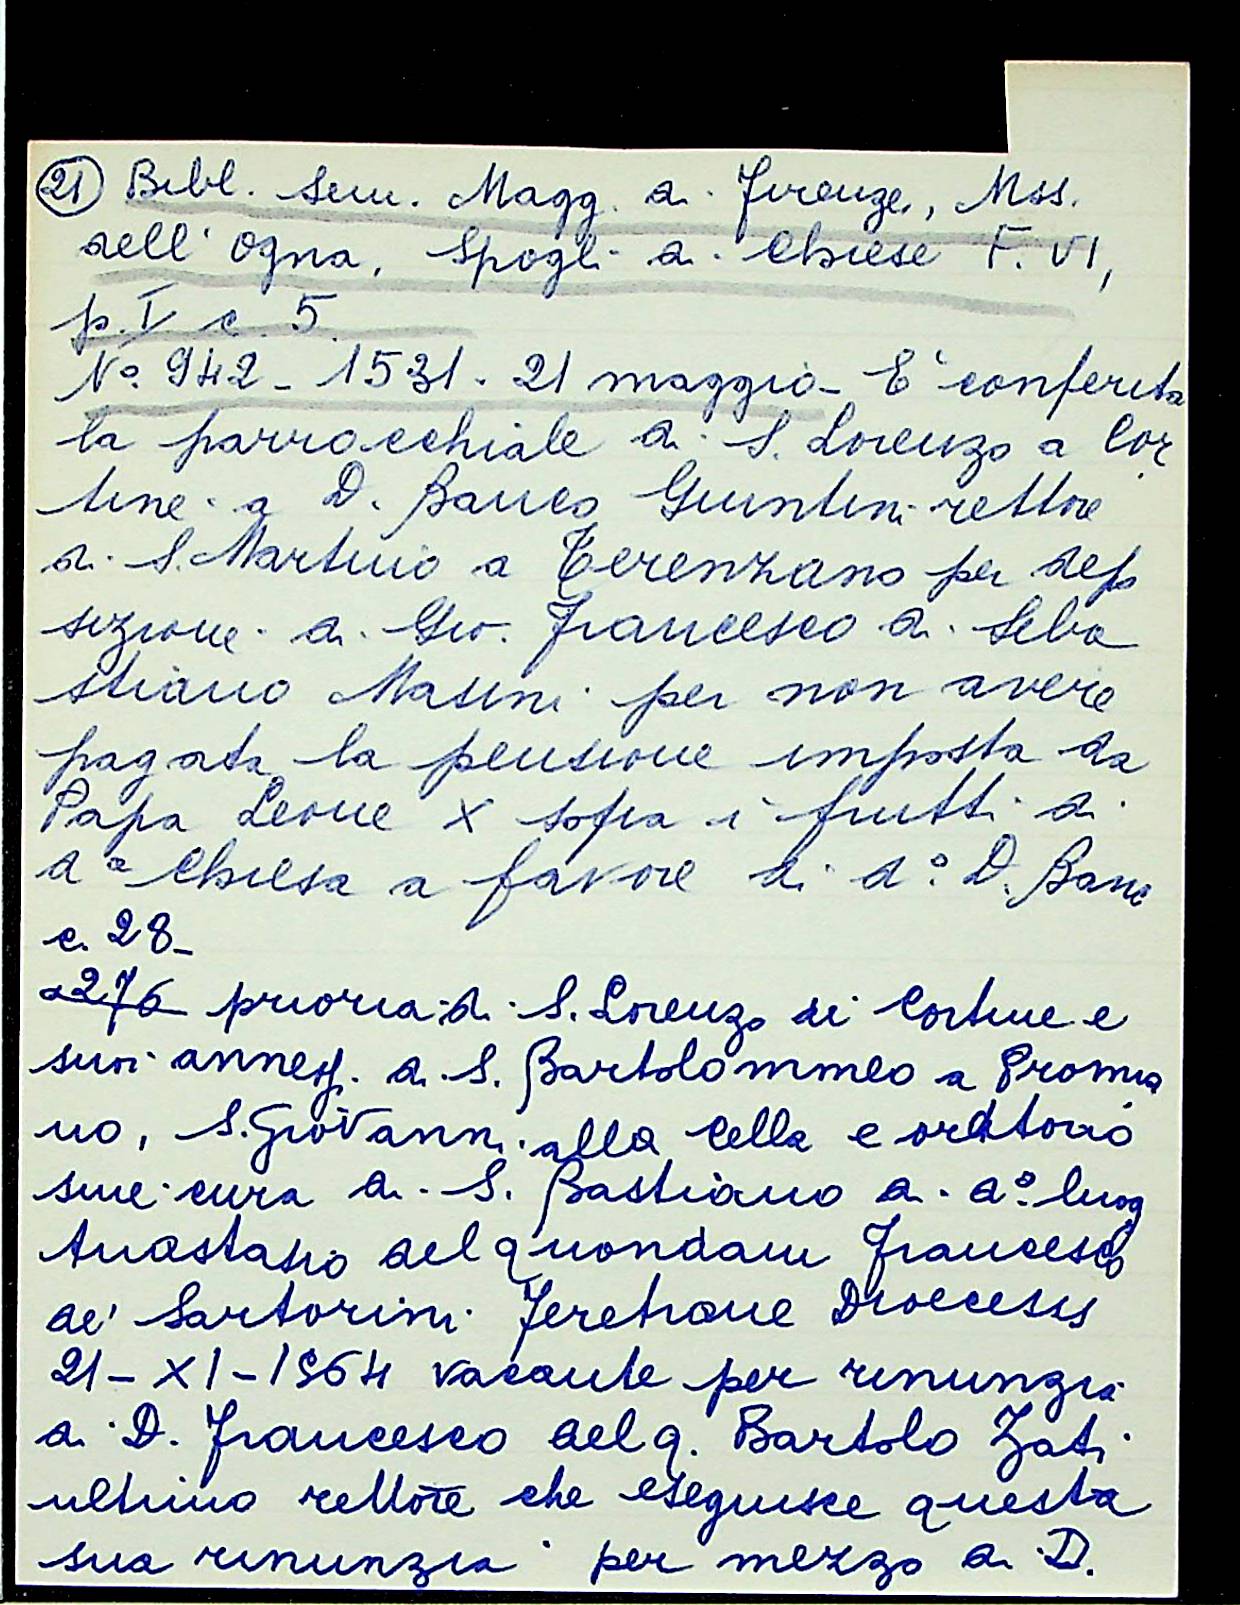 (21) Bibl. Sem. Magg. di Firenze, Mss.
dell'Ogna, Spogli di Chiese F. VI,
p. I c. 5
No. 942 - 1531 - 21 maggio - E' conferita
la parrocchiale di S. Lorenzo a Cor
tine a D. Banco Giuntini rettore
di S. Martino a Terenzano per depo
sizione di Gio. Francesco di Seba
stiano Masini per non avere
pagata la pensione imposta da
Papa Leone X sopra i frutti di
da Chiesa a favore di do. D. Banc
c. 28 -
2276 prioria di S. Lorenzo di Cortine e
suoi annessi di S. Bartolommeo a Promia
no, S. Giovanni alla Cella e oratorio
sine cura di S. Bastiano di do. luog
Anastasio del quondam Francesco
de' Sartorini Feretrane Diocesis
21-XI-1564 vacante per rinunzia
di D. Francesco del q. Bartolo Zati
ultimo rettore che eseguisce questa
sua rinunzia per mezzo di D.